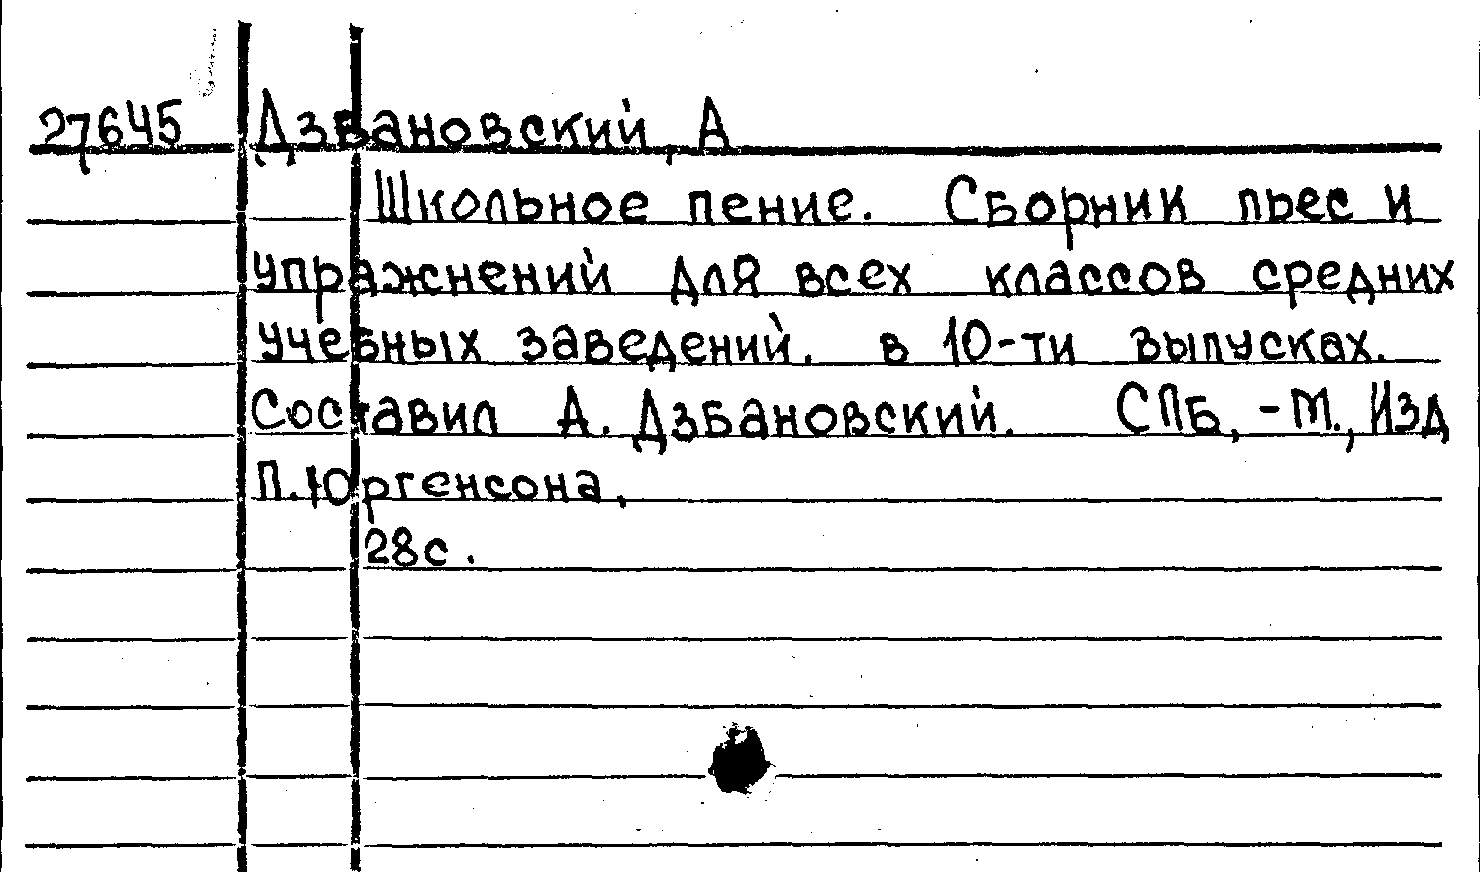 27645 Дзбановский, А
Школьное пение. Сборник пьес и
упражнений для всех классов средних
учебных заведений. в 10-ти выпусках.
Составил А. Дзбановский. СПБ, -М., Изд
П. Юргенсона,
28с.